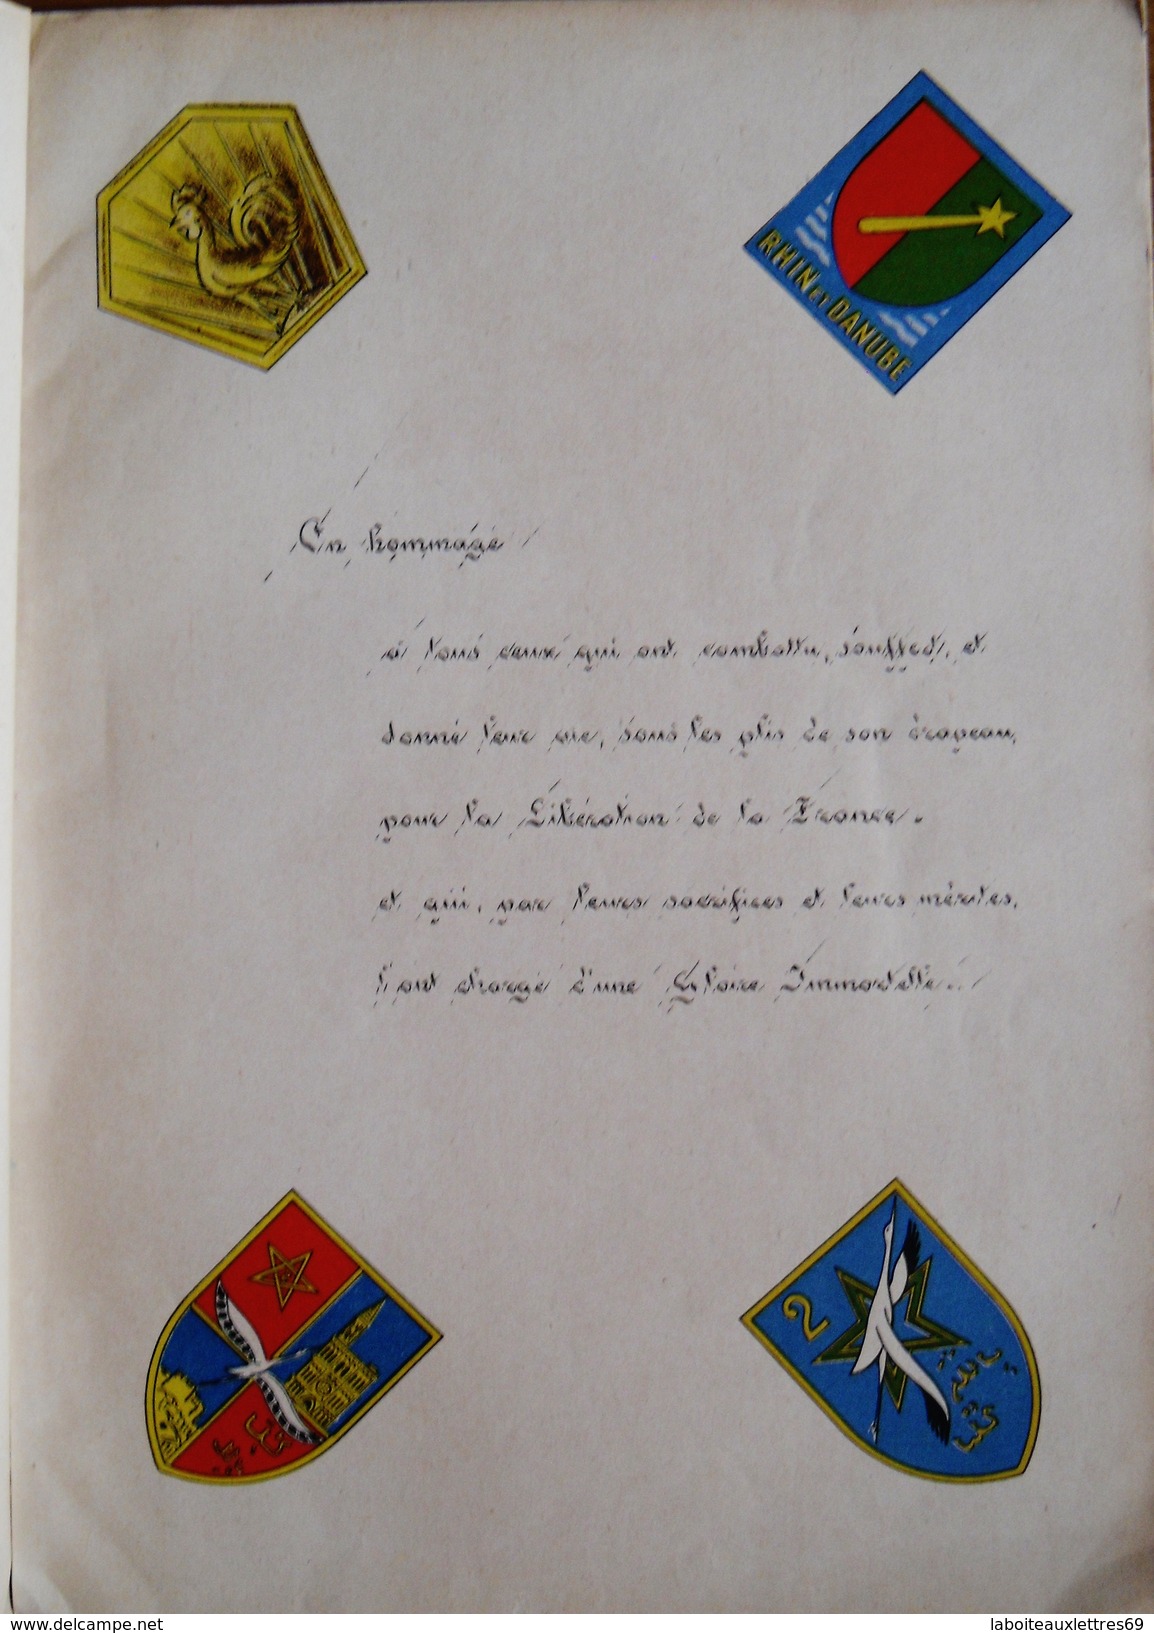 RHIN ET DANUBE
En hommage
à tous ceux qui ont combattu, souffert, et
donné leur vie, sous les plis de son drapeau,
pour la Libération de la France.
et qui, par leurs sacrifices et leurs mérites,
l'ont chargé d'une Gloire Immortelle..
2
delcampe.net
laboiteauxlettres69